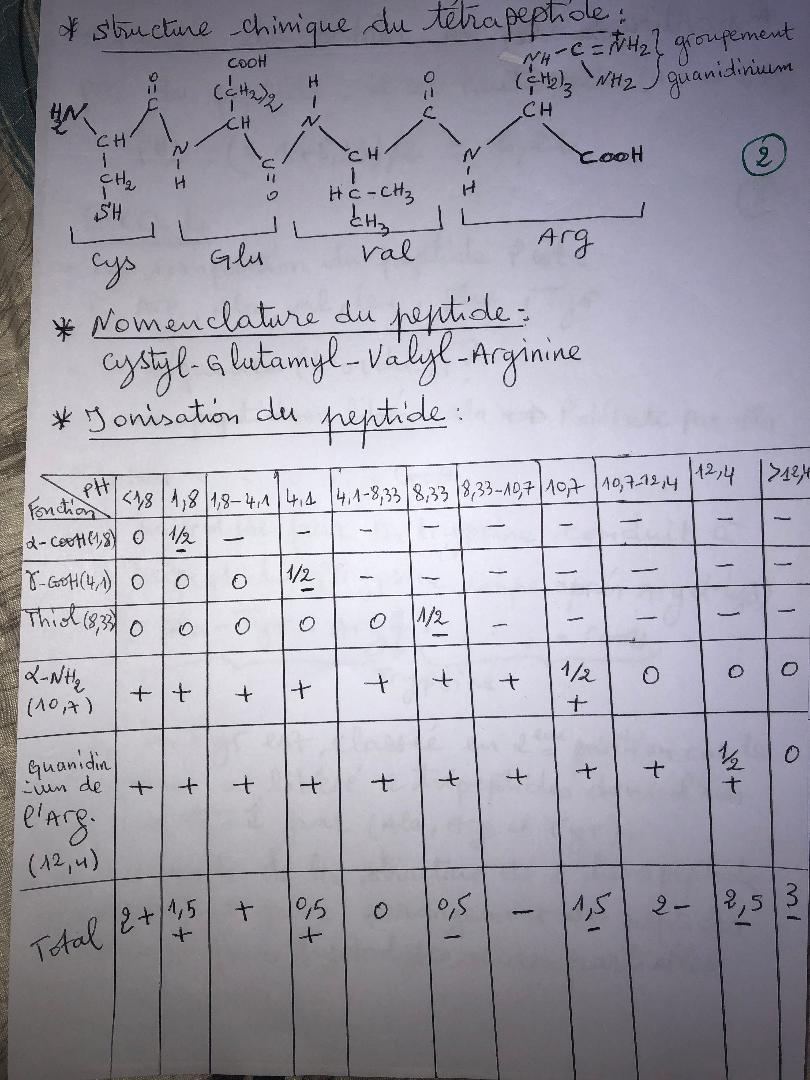 * Structure chimique du tétrapeptide :
COOH
NH - C = NH2 } groupement
+
O
(CH2)2
H
O
(CH2)3
NH2 } guanidinium
H2N
C
CH
N
C
CH
CH
N
C
CH
N
COOH
2
CH2
H
O
HC - CH3
H
SH
CH3
Cys
Glu
Val
Arg
* Nomenclature du peptide :
Cystyl-Glutamyl-Valyl-Arginine
* Ionisation du peptide :
Fonction pH <1,8 1,8 1,8-4,1 4,1 4,1-8,33 8,33 8,33-10,7 10,7 10,7-12,4 12,4 >12,4
α-COOH (1,8) 0 1/2 - - - - - - - - - -
γ-COOH (4,1) 0 0 0 1/2 - - - - - - - -
Thiol (8,33) 0 0 0 0 0 1/2 - - - - - -
α-NH2 (10,7) + + + + + + + 1/2 + 0 0 0
Guanidin
-ium de
l'Arg.
(12,4) + + + + + + + + + 1/2 + 0
Total 2+ 1,5 + + 0,5 + 0 0,5 - - 1,5 - 2- 2,5 - 3 -